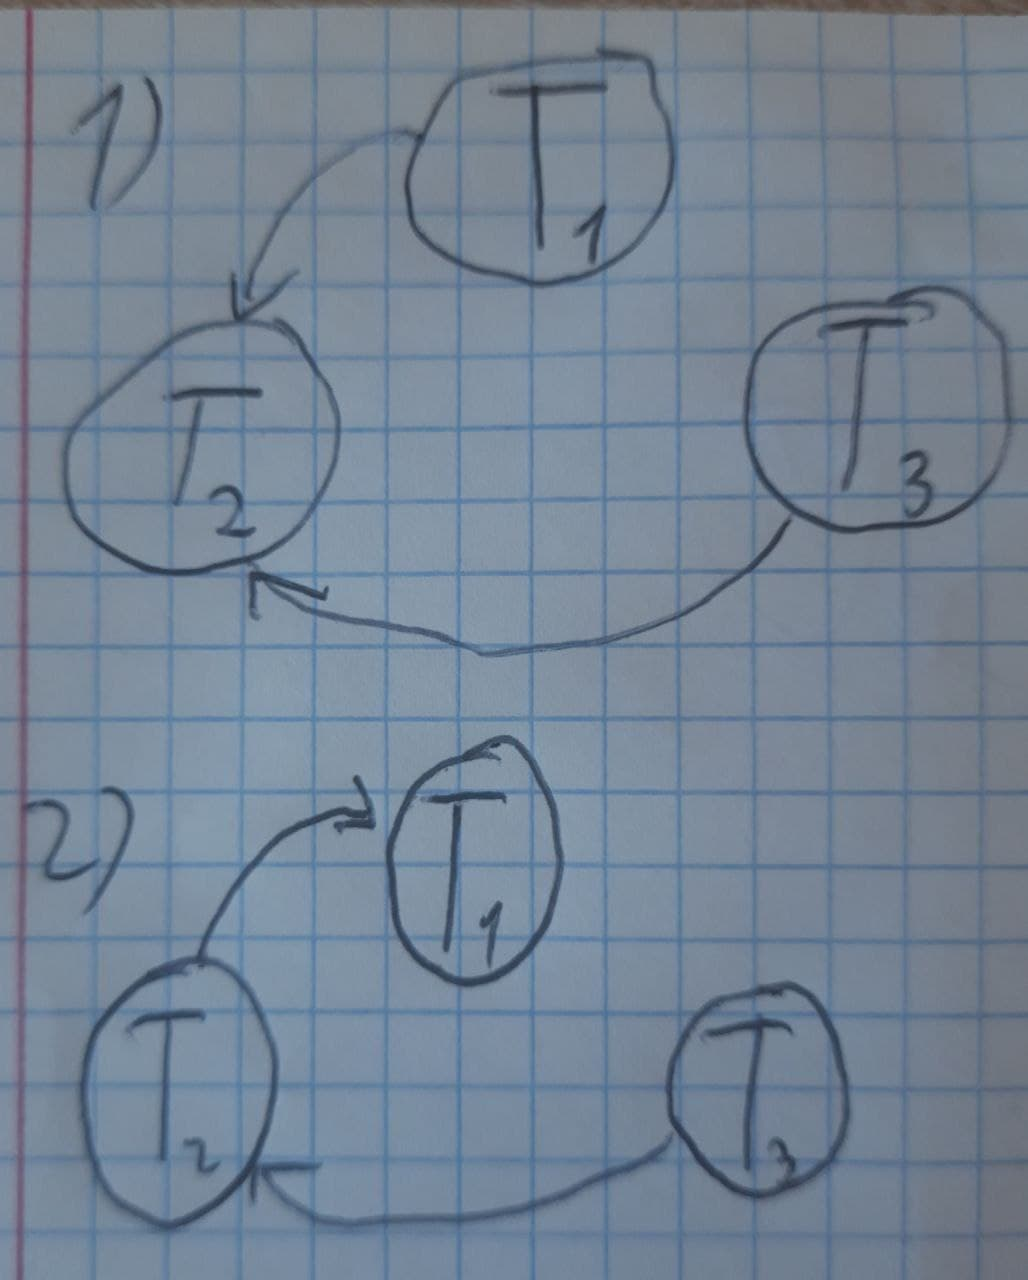 1)
T1
T2
T3
2)
T1
T2
T3